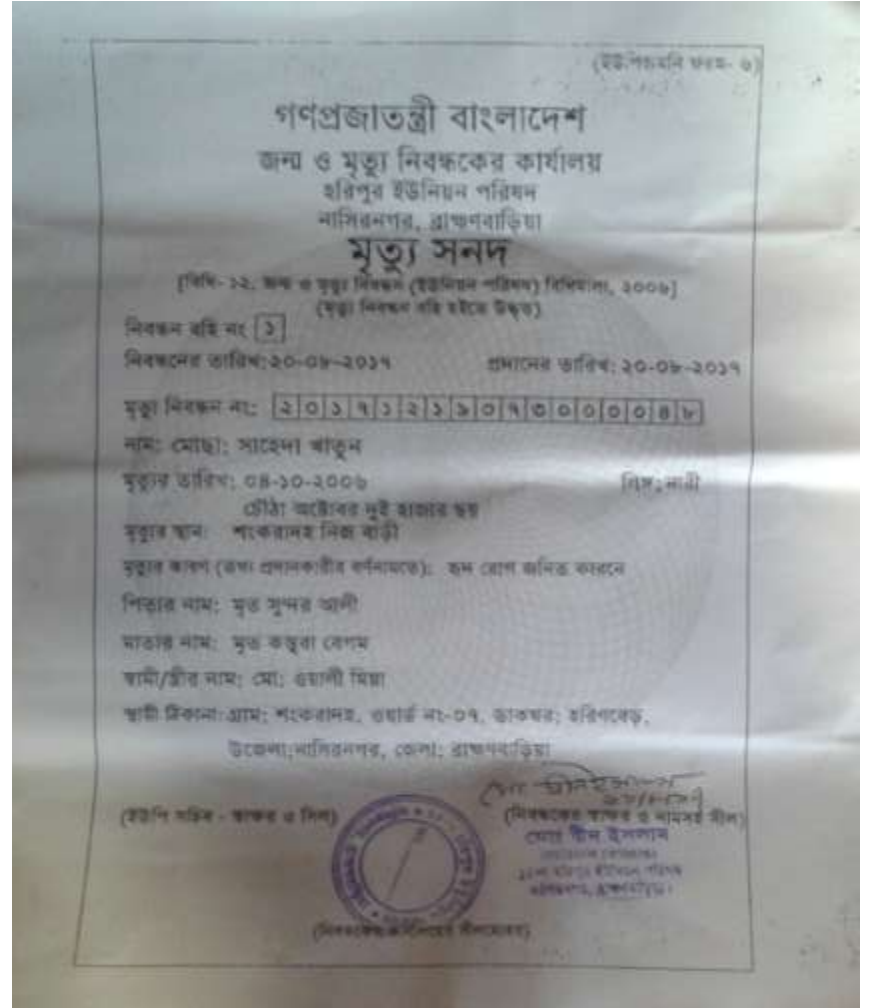 (ইউপিজমনি ফরম- ৬)
গণপ্রজাতন্ত্রী বাংলাদেশ
জন্ম ও মৃত্যু নিবন্ধকের কার্যালয়
হরিপুর ইউনিয়ন পরিষদ
নাসিরনগর, ব্রাহ্মণবাড়িয়া
মৃত্যু সনদ
[বিধি- ১২, জন্ম ও মৃত্যু নিবন্ধন (ইউনিয়ন পরিষদ) বিধিমালা, ২০০৬]
(মৃত্যু নিবন্ধন বহি হইতে উদ্ধৃত)
নিবন্ধন বহি নং ১
নিবন্ধনের তারিখ:২০-০৮-২০১৭ প্রদানের তারিখ: ২০-০৮-২০১৭
মৃত্যু নিবন্ধন নং: ২০১৭১২১৯০৭৩০০০০৪৮
নাম: মোছা: সাহেদা খাতুন
মৃত্যুর তারিখ: ০৪-১০-২০০৬ লিঙ্গ: নারী
চৌঠা অক্টোবর দুই হাজার ছয়
মৃত্যুর স্থান: শংকরাদহ নিজ বাড়ী
মৃত্যুর কারণ (তথ্য প্রদানকারীর বর্ণনামতে): হৃদ রোগ জনিত কারনে
পিতার নাম: মৃত সুন্দর আলী
মাতার নাম: মৃত বেগম
স্বামী/স্ত্রীর নাম: মো: ওয়ালী মিয়া
স্থায়ী ঠিকানা:গ্রাম: শংকরাদহ, ওয়ার্ড নং-০৭, ডাকঘর; হরিণবেড়,
উজেলা;নাসিরনগর, জেলা; ব্রাহ্মণবাড়িয়া
(ইউপি সচিব - স্বাক্ষর ও সিল) (নিবন্ধকের স্বাক্ষর ও নামসহ সীল)
মোঃ দ্বীন ইসলাম
হরিপুর ইউনিয়ন পরিষদ
নাসিরনগর, ব্রাহ্মণবাড়িয়া।
(নিবন্ধকের কার্যালয়ের সীলমোহর)